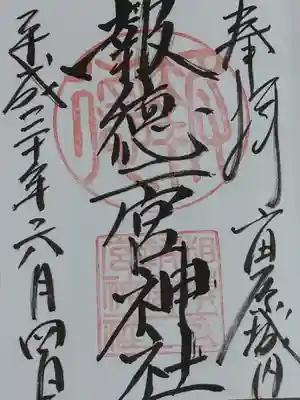 奉拝　小田原城内
報徳二宮神社
平成二十年六月四日